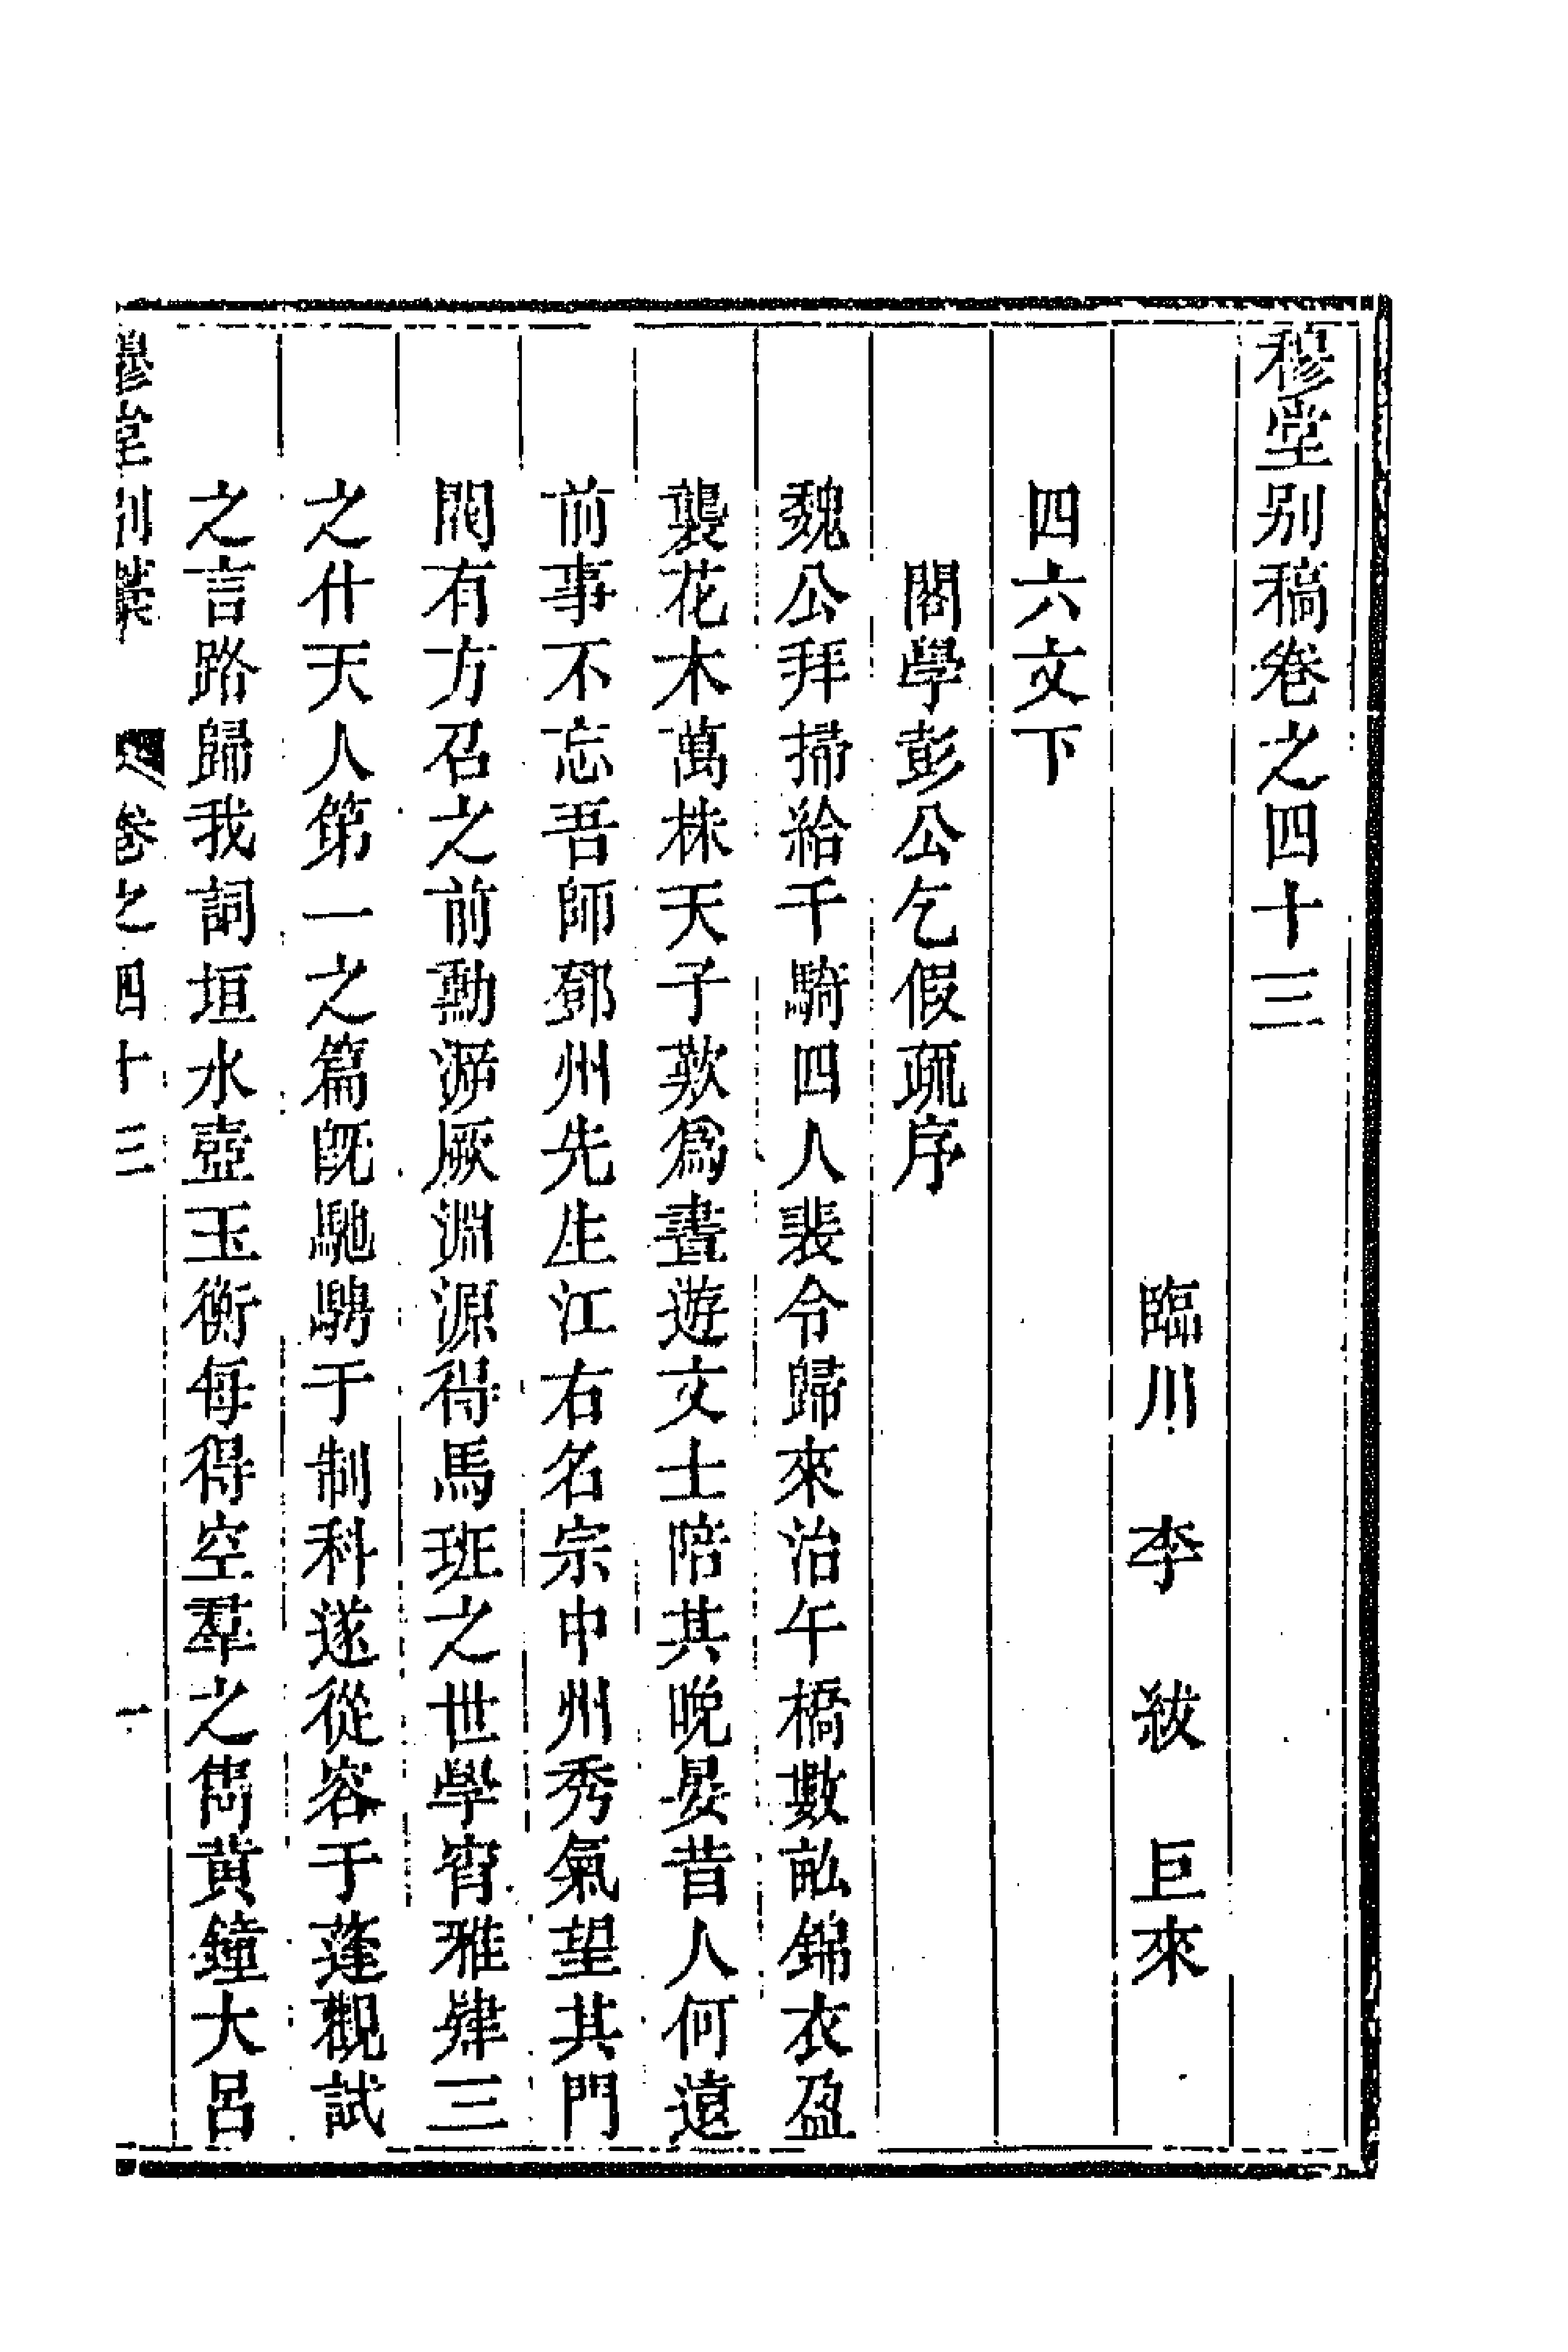 穆堂别稿卷之四十三
臨川 李 紱 巨來
四六文下
閣學彭公乞假疏序
魏公拜掃給千騎四人裴令歸來治午橋數畝錦衣盈
襲花木萬株天子歎爲晝遊文士陪其晚晏昔人何遠
前事不忘吾師鄧州先生江右名宗中州秀氣望其門
閥有方召之前勳遡厥淵源得馬班之世學宵雅肄三
之什天人第一之篇既馳騁于制科遂從容于蓬觀試
之言路歸我詞垣水壺玉衡每得空羣之儁黄鐘大呂
穆堂别藳 卷之四十三 一